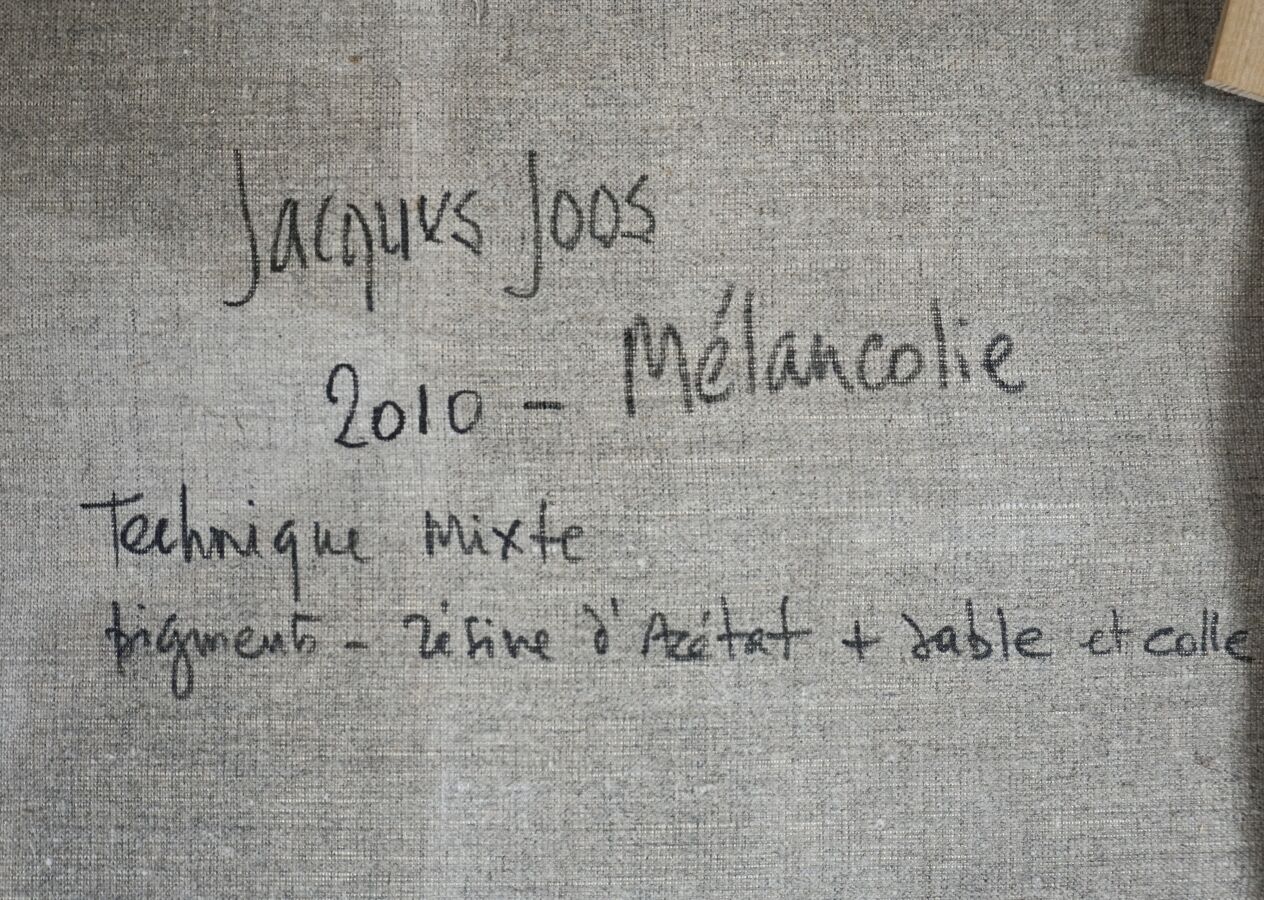 Jacques Joos
2010 - Mélancolie
Technique Mixte
pigments - résine d'Acétat + sable et colle